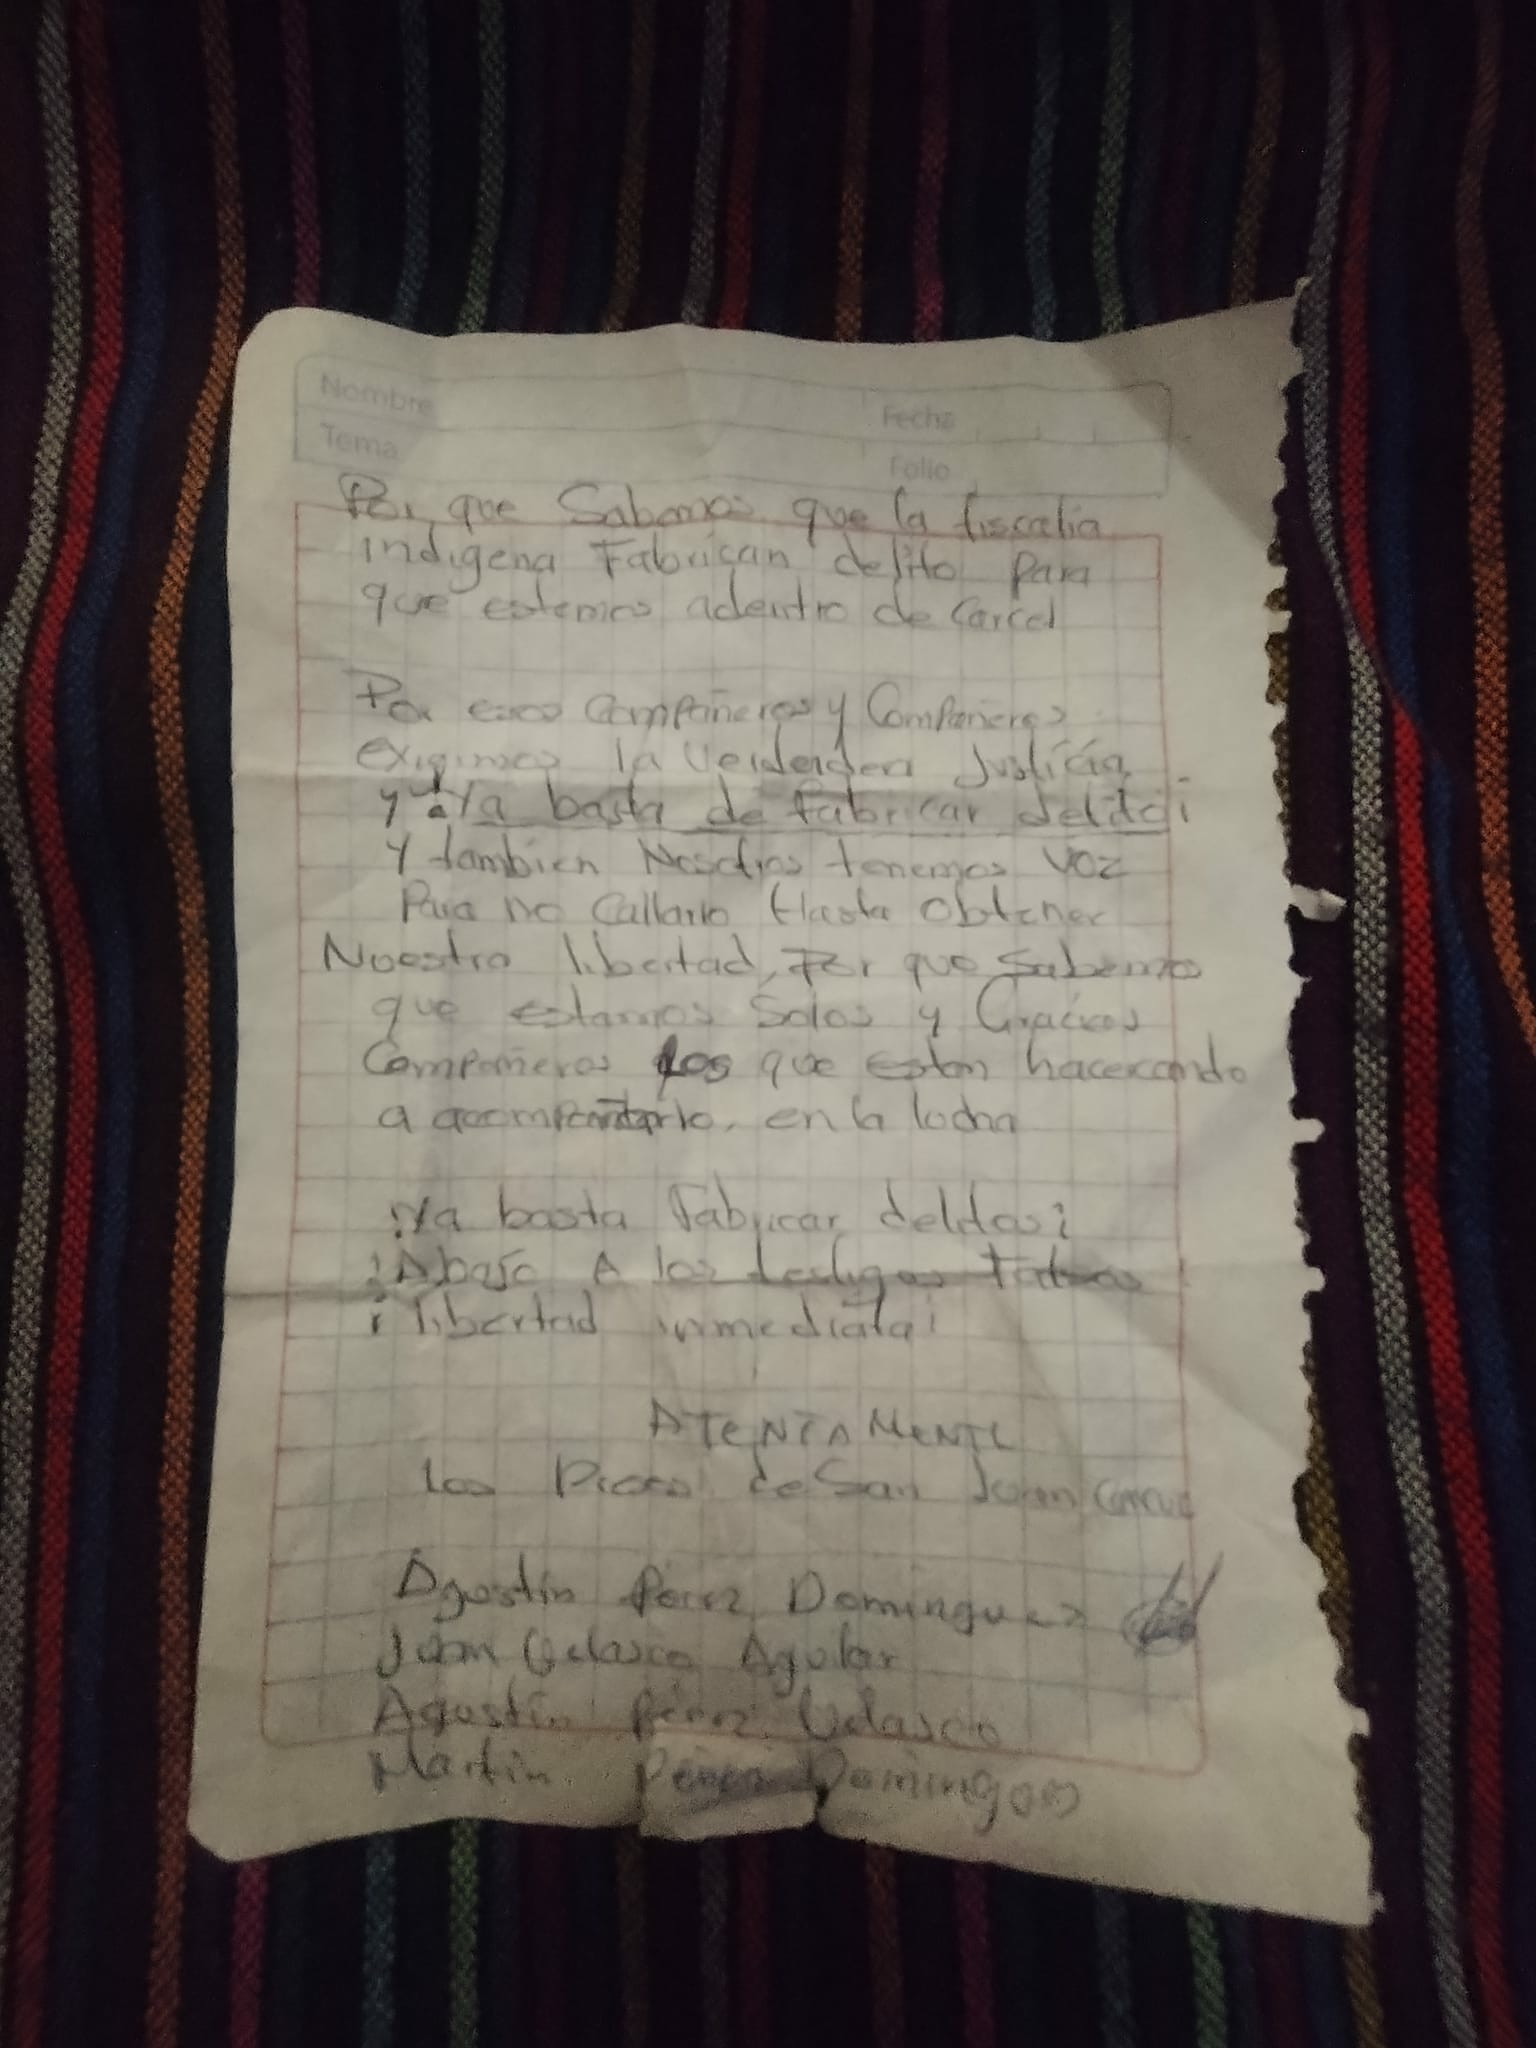 Nombre
Fecha
Tema
Folio
Por que Sabemos que la fiscalia
indigena Fabrican delito para
que estemos adentro de Carcel
Por esos Compañeros y Compañeras
exigimos la Verdadera Justicia
y ¡Ya basta de fabricar delito¡
Y tambien Nosotros tenemos Voz
Para no Callarlo Hasta Obtener
Nuestra libertad, Por que Sabemos
que estamos Solos y Gracias
Compañeros los que estan hacercando
a acompañarlo, en la lucha
¡Ya basta Fabricar delitos¡
¡Abajo A los testigos
¡libertad inmediata¡
ATENTAMENTE
Los Presos de San Juan
Agustín Pérez Domínguez
Juan Velasco Aguilar
Agustín Pérez Velasco
Martin Pérez Domingues